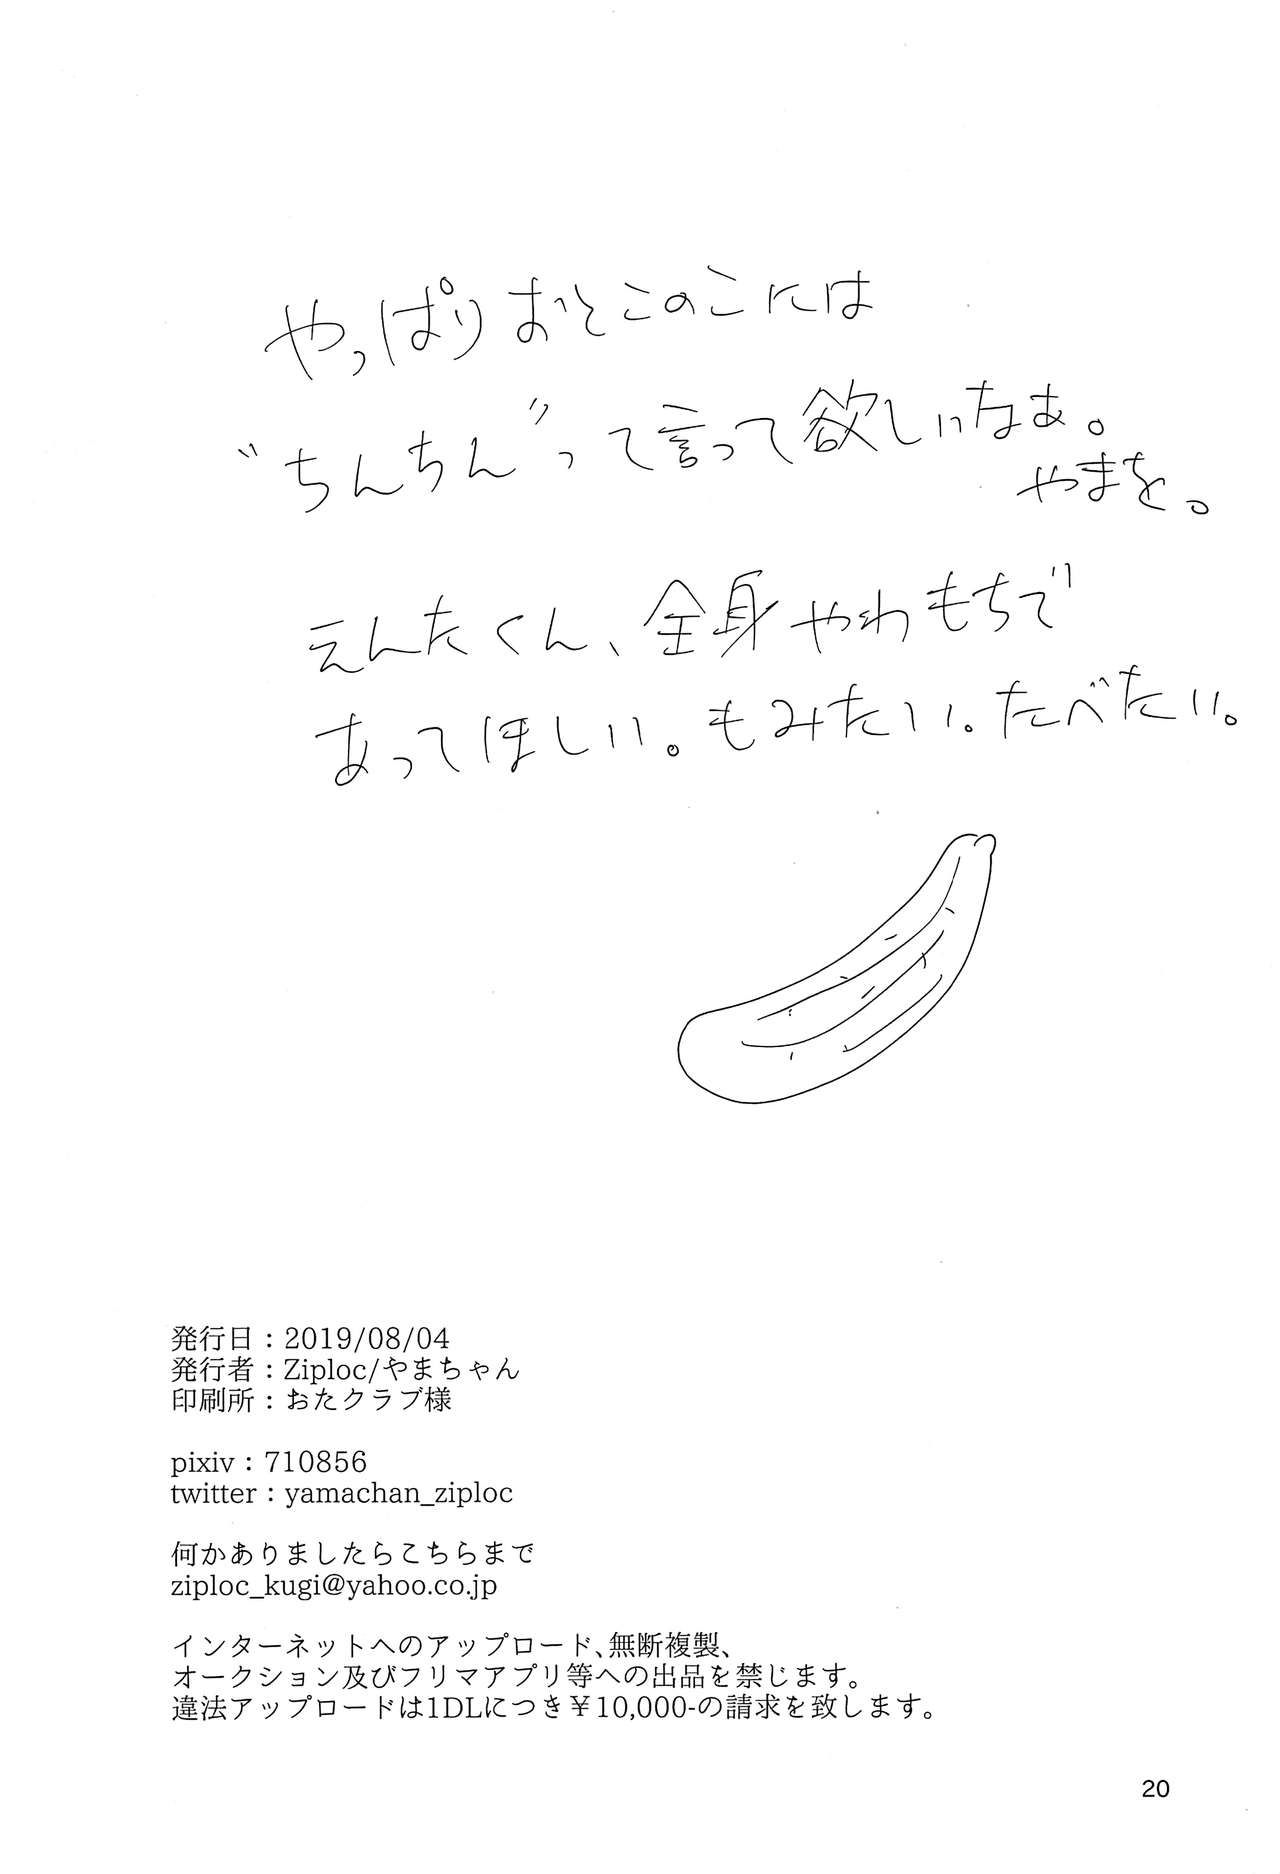 やっぱりおとこのこには
"ちんちん"って言って欲しいなぁ。
やまを。
えんたくん、全身やわもちで
あってほしい。もみたい。たべたい。
発行日：2019/08/04
発行者：Ziploc/やまちゃん
印刷所：おたクラブ様
pixiv：710856
twitter：yamachan_ziploc
何かありましたらこちらまで
ziploc_kugi@yahoo.co.jp
インターネットへのアップロード、無断複製、
オークション及びフリマアプリ等への出品を禁じます。
違法アップロードは1DLにつき￥10,000-の請求を致します。
20